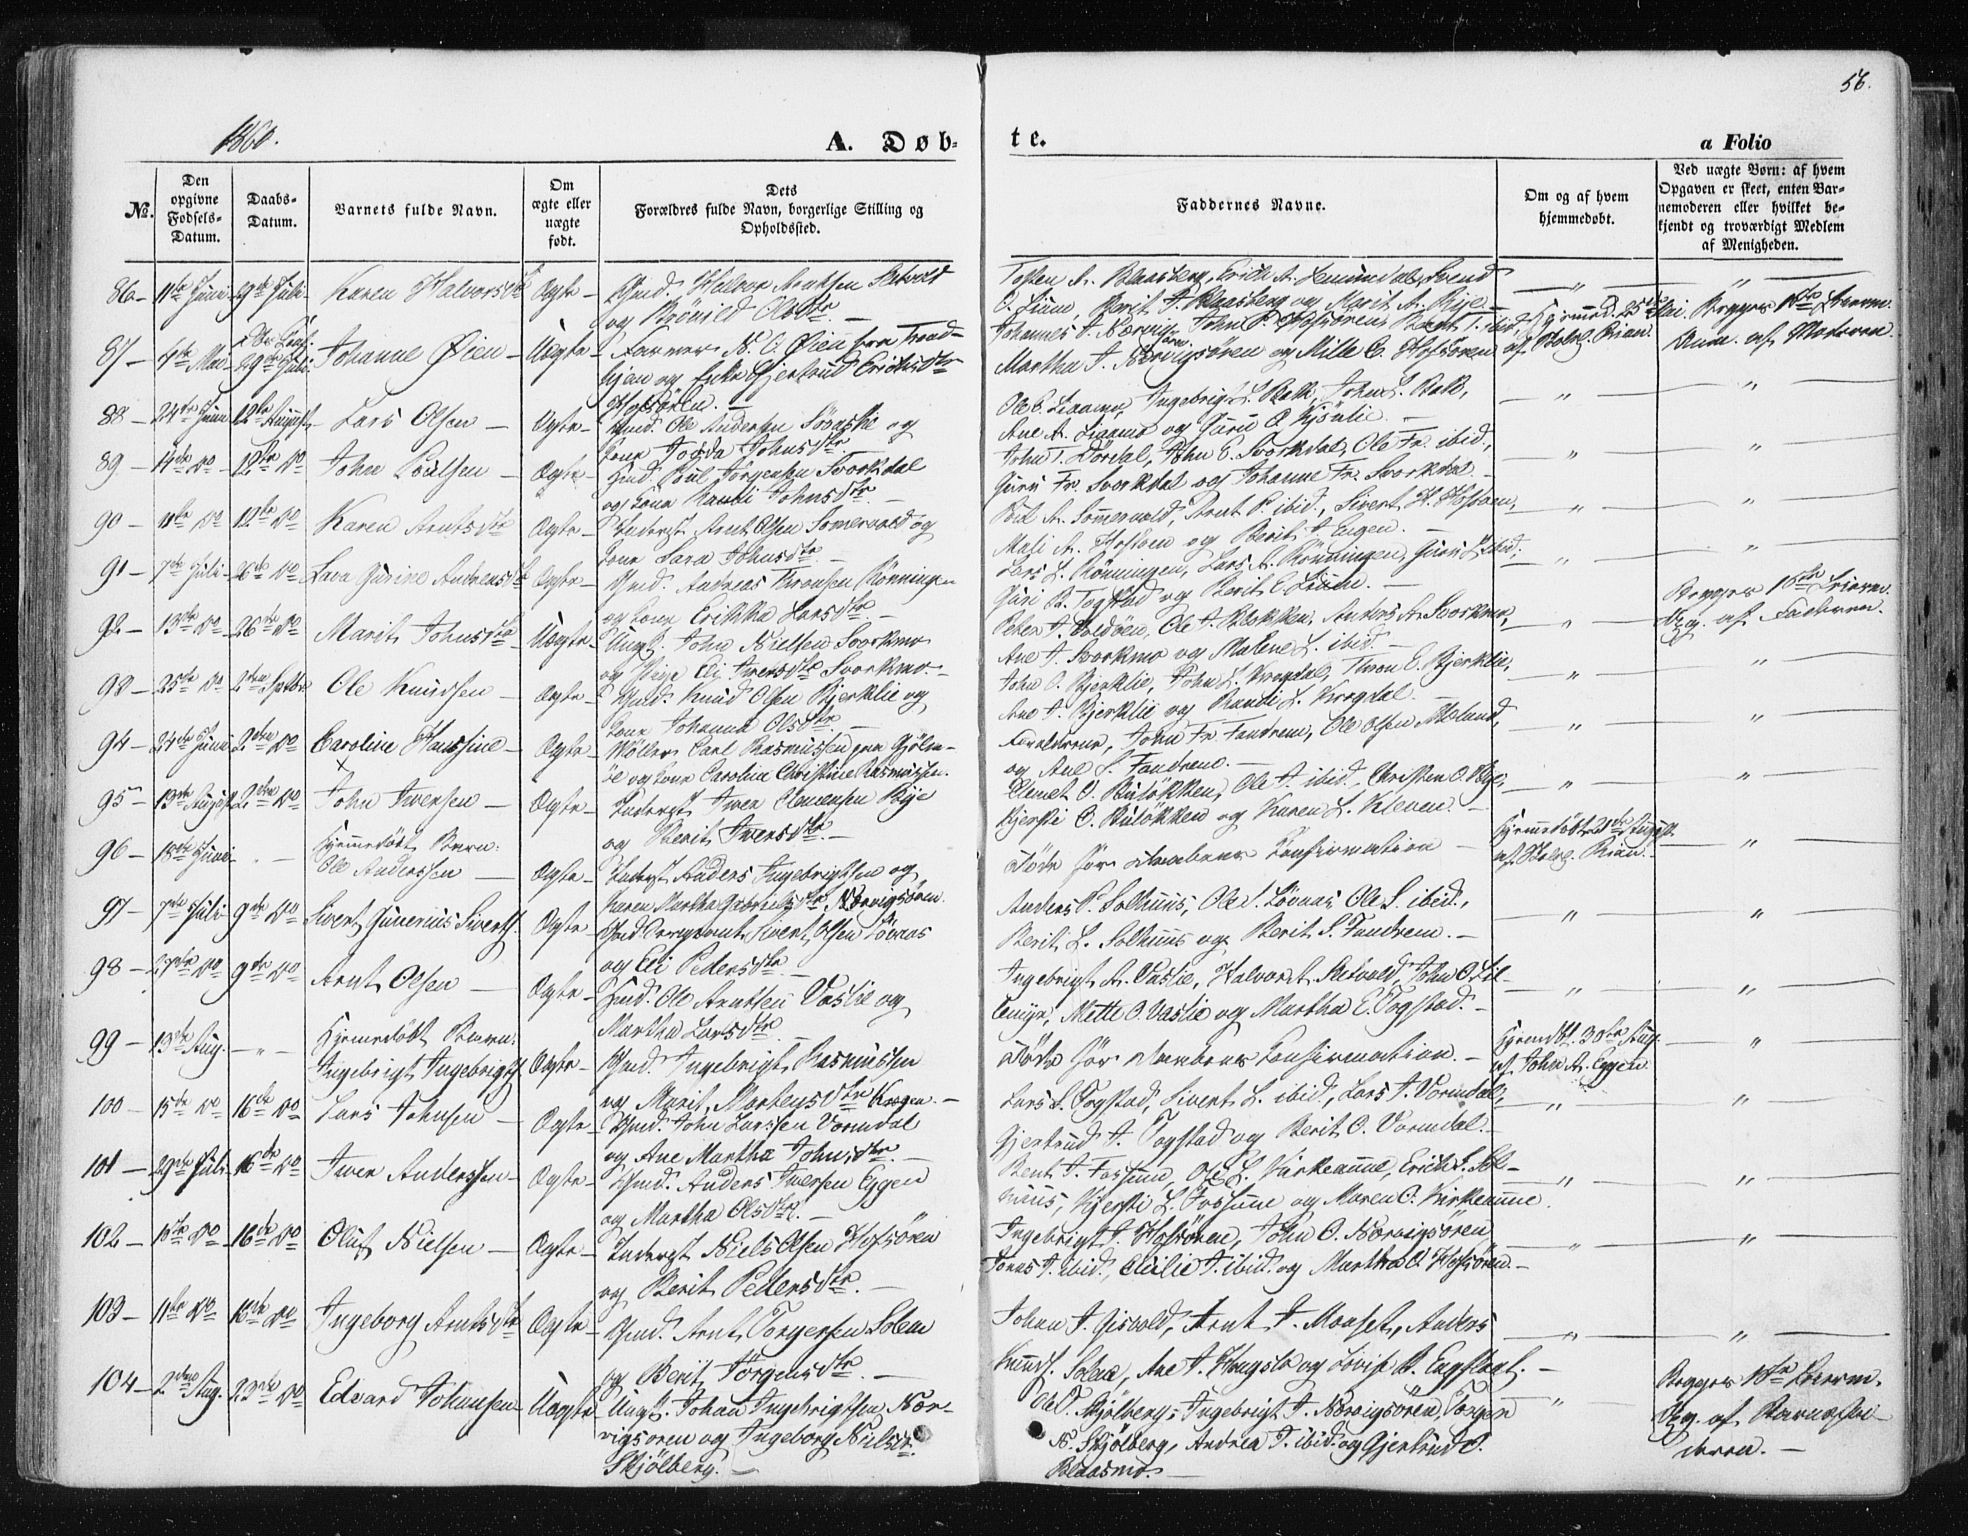 56.
1860.
A. Døb-
te.
a Folio
No.
Den opgivne Fødsels-Datum.
Daabs-Datum.
Barnets fulde Navn.
Om ægte eller uægte født.
Dets Forældres fulde Navn, borgerlige Stilling og Opholdssted.
Faddernes Navne.
Om og af hvem hjemmedøbt.
Ved uægte Børn: af hvem Opgaven er skeet, enten Barnemoderen eller hvilket bekjendt og troværdigt Medlem af Menigheden.
86 — 11te Juni 29de Juli Karen Halvorsdtr Ægte — Gmd. Halvor Arntsen Sletvold
og Brønild Olsdtr. —
Tosten A. Blaasberg, Erich A. Svend
E. Lium, Berit J. Blaasberg og Marit A. Rye —
87 — 4de Mai 29de Juli Johanne Øien — Uægte — N. E. Øien fra Trond-
hjem og Enke Gjertrud Erichsdtr
Hofsøren. —
Johannes T. Nervig, John P. Hofsøren, Berit T. ibid,
Martha J. Nervigsøren og Mille E. Hofsøren
Hjemmed. 25de Mai
af Brian.
Begges 1ste Leierm.
Anm. af Moderen.
88 — 24de Juni 12te August Lars Olsen — Ægte — Gmd. Ole Andersen Søvaslie og
Kone Johnsdtr
Ole E. Liammo, Ingebrigt L. Bak, John L. Bak,
Ane A. Liammo og Guru O. Kjønlie. —
89 — 14de Do 12te Do John Poulsen — Ægte — Gmd. Poul Jørgensen Svorkdal
og Kone Randi Johnsdtr —
John T. Dørdal, John E. Svorkdal, Ole Fr. ibid,
Guru Fr. Svorkdal og Johanne Fr. Svorkdal —
90 — 11te Do 12te Do Karen Arntsdtr Ægte — Inderst Arnt Olsen Somervold og
Kone Sara Johnsdtr —
Poul A. Sommervold, Arnt P. ibid, Sivert H. Hofsøen,
Mali A. Hofsøen og Berit J. Engen. —
91 — 7de Juli 26de Do Lava Gurine Andreasdtr Ægte — Gmd. Andreas Thronsen Rønningen
og Kone Erikka Larsdtr —
Lars L. Rønningen, Lars A. Rønningen, Guru L. ibid,
Guri B. Togstad og Berit E. Lium. —
92 — 13de Do 26de Do Marit Johnsdtr Uægte — Ungk. John Nielsen Svorkmo
og Pige Eli Iversdtr Svorkmo —
Peter J. Voldøen, Ole J. Blokken, Anders A. Svorkmo,
Ane J. Svorkmo og Malene L. ibid —
Begges 1ste Leierm.
Opg. af Faderen.
93 — 25de Do 2den Septbr Ole Knudsen — Ægte — Gmd. Knud Olsen Bjerklie og
Kone Johanna Olsdtr —
John O. Bjerklie, John L. Krogdal, Thron E. Bjerklie,
Ane J. Bjerklie og Randi L. Krogdal. —
94 — 24de Juni 2den Do Caroline Hansine — Ægte — Møller Carl Rasmussen paa Gjølm-
e og Kone Carolina Christine Rasmussen.
Forældrene, John Fr. Fandrem, Ole Olsen Moland,
og Ane S. Fandrem. —
95 — 13de August 2den Do John Iversen — Ægte — Inderst Iver Clemensen Rye
og Berit Iversdtr —
Clemet O. Buløkken, Ole J. ibid, Christen O. Rye,
Kjersti O. Buløkken og Karen L. Kleven —
96 — 18de Juni — Hjemmedøbt Barn:
Ole Anderssen — Ægte — Inderst Anders Ingebrigtsen og
Karen Martha Gabrielsdtr Nervigsøren.
Døde før Daabens Confirmation —
Hjemmedøbt 21de August
af Brian —
97 — 7de Juli 9de Do Sivert Gunerius Siverts. Ægte — Gmd. Sivert Olsen Løvaas
og Eli Pedersdtr —
Anders P. Solhuus, Ole S. Løvaas, Ole S. ibid,
Berit L. Solhuus og Berit S. Fandrem. —
98 — 27de Do 9de Do Arnt Olsen — Ægte — Gmd. Ole Arntsen Vaslie og
Martha Larsdtr —
Ingebrigt A. Vaslie, Halvor A. Sletvold, John O. Lil-
Mette O. Vaslie og Martha E. Togstad. —
99 — 13de Aug. — Hjemmedøbt Barn:
Ingebrigt Ingebrigts. Ægte — Gmd. Ingebrigt Rasmussen
og Marit Mortensdtr Krogen. —
Døde før Daabens Confirmation. —
Hjemdbt. 30te Aug.
af John A. Eggen
100 — 15de Do 16de Do Lars Johnsen — Ægte — Gmd. John Larssen Vormdal
og Ane Martha Johnsdtr —
Lars S. Togstad, Sivert L. ibid, Lars J. Vormdal,
Gjertrud J. Togstad og Berit O. Vormdal. —
101 — 29de Juli 16de Do Iver Anderssen Ægte — Gmd. Anders Iversen Eggen
og Martha Olsdtr. —
Bent J. Fossum, Ole L. Kirkeaune, Erich S. Sol-
huus, Kjersti L. Fossum og Maren O. Kirkeaune.
102 — 15te Do 16de Do Oluf Nielsen — Ægte — Inderst Niels Olsen Hofsøren
og Berit Pedersdtr. —
Ingebrigt J. Hofsøren, John O. Nervigsøren,
Jonas J. ibid, Cecilie J. ibid og Martha O. Hofsøren. —
103 — 11te Do 16de Do Ingeborg Arntsdtr Ægte — Gmd. Arnt Torgersen Solem
og Berit Jørgensdtr. —
Johan J. Gisvold, Arnt J. Monset, Anders
Knuds. Solem, Ane J. Haugslo og Lovise B. Engstlagt. —
104 — 2den Aug. 23de Do Edvard Johansen — Uægte — Ungk. Johan Ingebrigtsen Ner-
vigsøren og Ingeborg Nilsdtr
Skjølberg. —
Ole O. Skjølberg, Ingebrigt J. Nervigsøren, Torger
N. Skjølberg, Andrea J. ibid og Gjertrud O.
Blaasmo. —
Begges 1ste Leierm.
Opg. af Barnefa-
deren. —